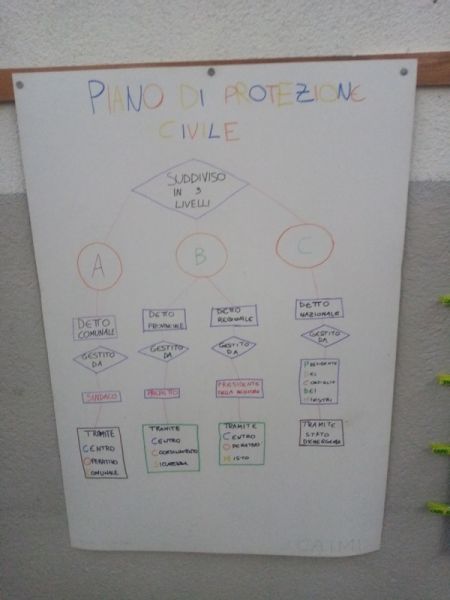 PIANO DI PROTEZIONE
CIVILE
SUDDIVISO
IN 3
LIVELLI
A
B
C
DETTO
COMUNALE
DETTO
PROVINCIALE
DETTO
REGIONALE
DETTO
NAZIONALE
GESTITO
DA
GESTITO
DA
GESTITO
DA
GESTITO
DA
SINDACO
PREFETTO
PRESIDENTE
DELLA REGIONE
PRESIDENTE
DEL
CONSIGLIO
DEI
TRAMITE
CENTRO
OPERATIVO
COMUNALE
TRAMITE
CENTRO
COORDINAMENTO
TRAMITE
CENTRO
OPERATIVO
MISTO
TRAMITE
STATO
D'EMERGENZA